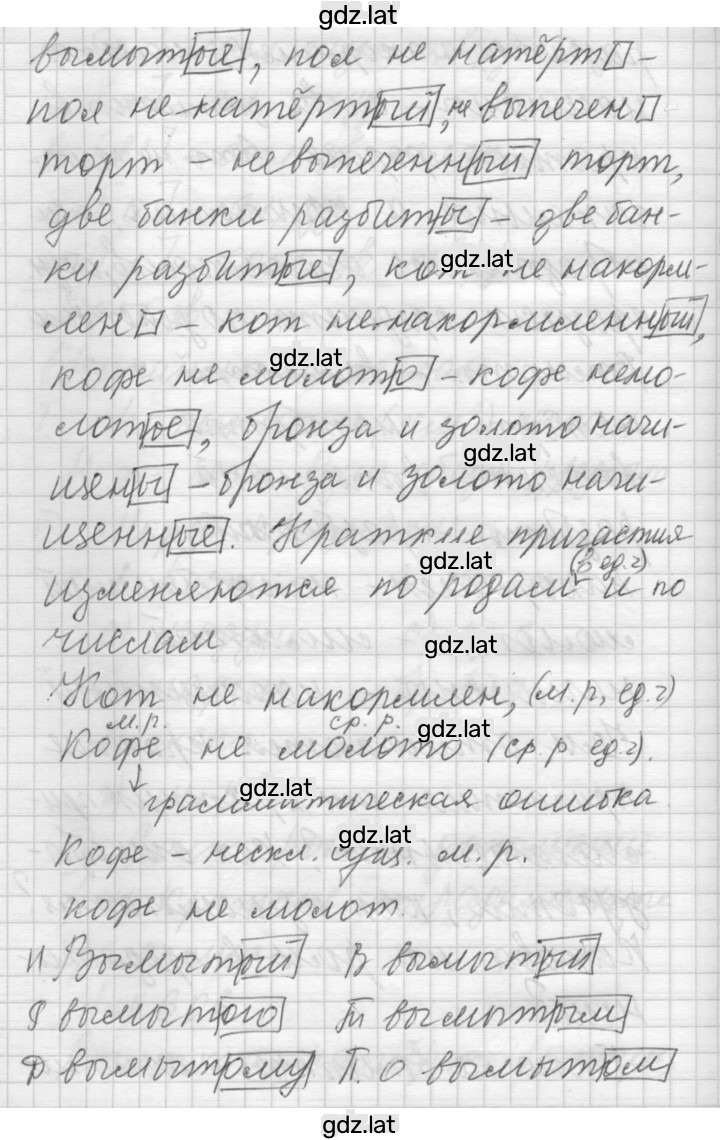 gdz.lat
вымытые, пол не натёрт -
пол не натёртый, не выпечен
торт - невыпеченный торт,
две банки разбиты - две бан-
ки разбитые, кот не накорм-
gdz.lat
лен - кот не накормленный,
gdz.lat
кофе не молото - кофе немо-
лотые, бронза и золото начи-
gdz.lat
щены - бронза и золото начи-
щенные. Краткие причастия
gdz.lat
(в ед.ч)
изменяются по родам и по
числам
gdz.lat
Кот не накормлен, (м.р, ед.ч)
м.р. ср. р.
gdz.lat
Кофе не молото (ср.р ед.ч).
gdz.lat
грамматическая ошибка.
gdz.lat
Кофе - нескл. сущ. м.р.
кофе не молот.
И Вымытый В вымытый
Р вымытого Т вымытым
Д вымытому П. о вымытом
gdz.lat